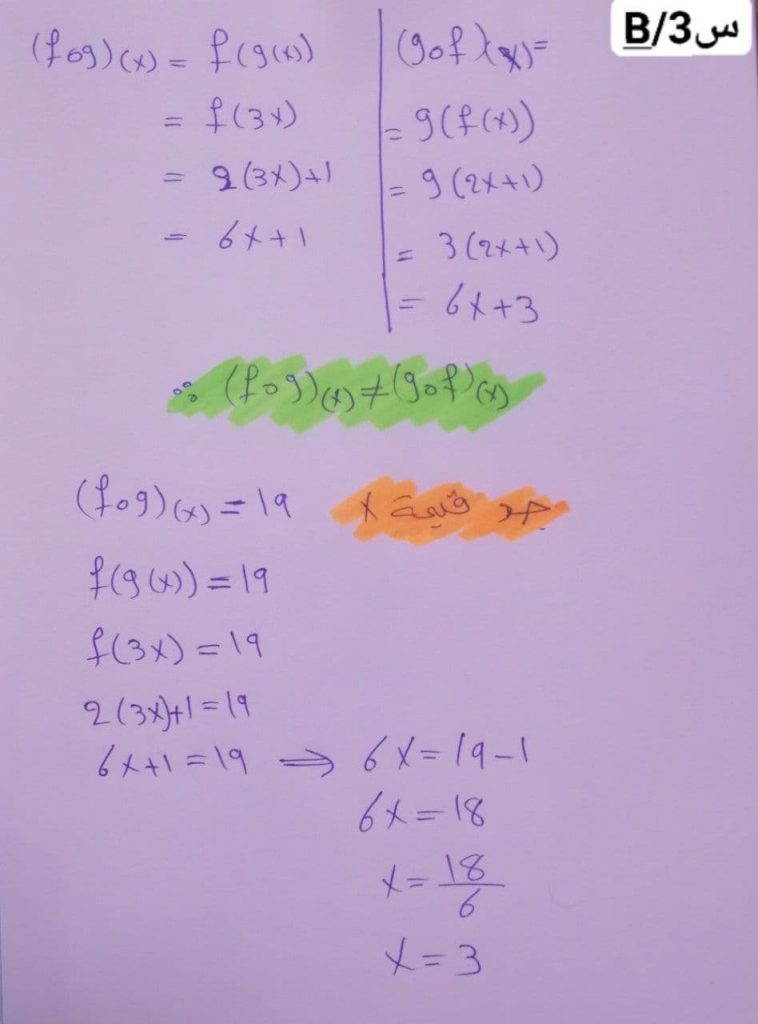 س3/B
(fog)(x) = f(g(x))
= f(3x)
= 2(3x)+1
= 6x+1
(gof)(x)=
= g(f(x))
= g(2x+1)
= 3(2x+1)
= 6x+3
∴ (fog)(x) ≠ (gof)(x)
جد قيمة x
(fog)(x) = 19
f(g(x)) = 19
f(3x) = 19
2(3x)+1 = 19
6x+1 = 19 ⟹ 6x = 19-1
6x = 18
x = 18/6
x = 3